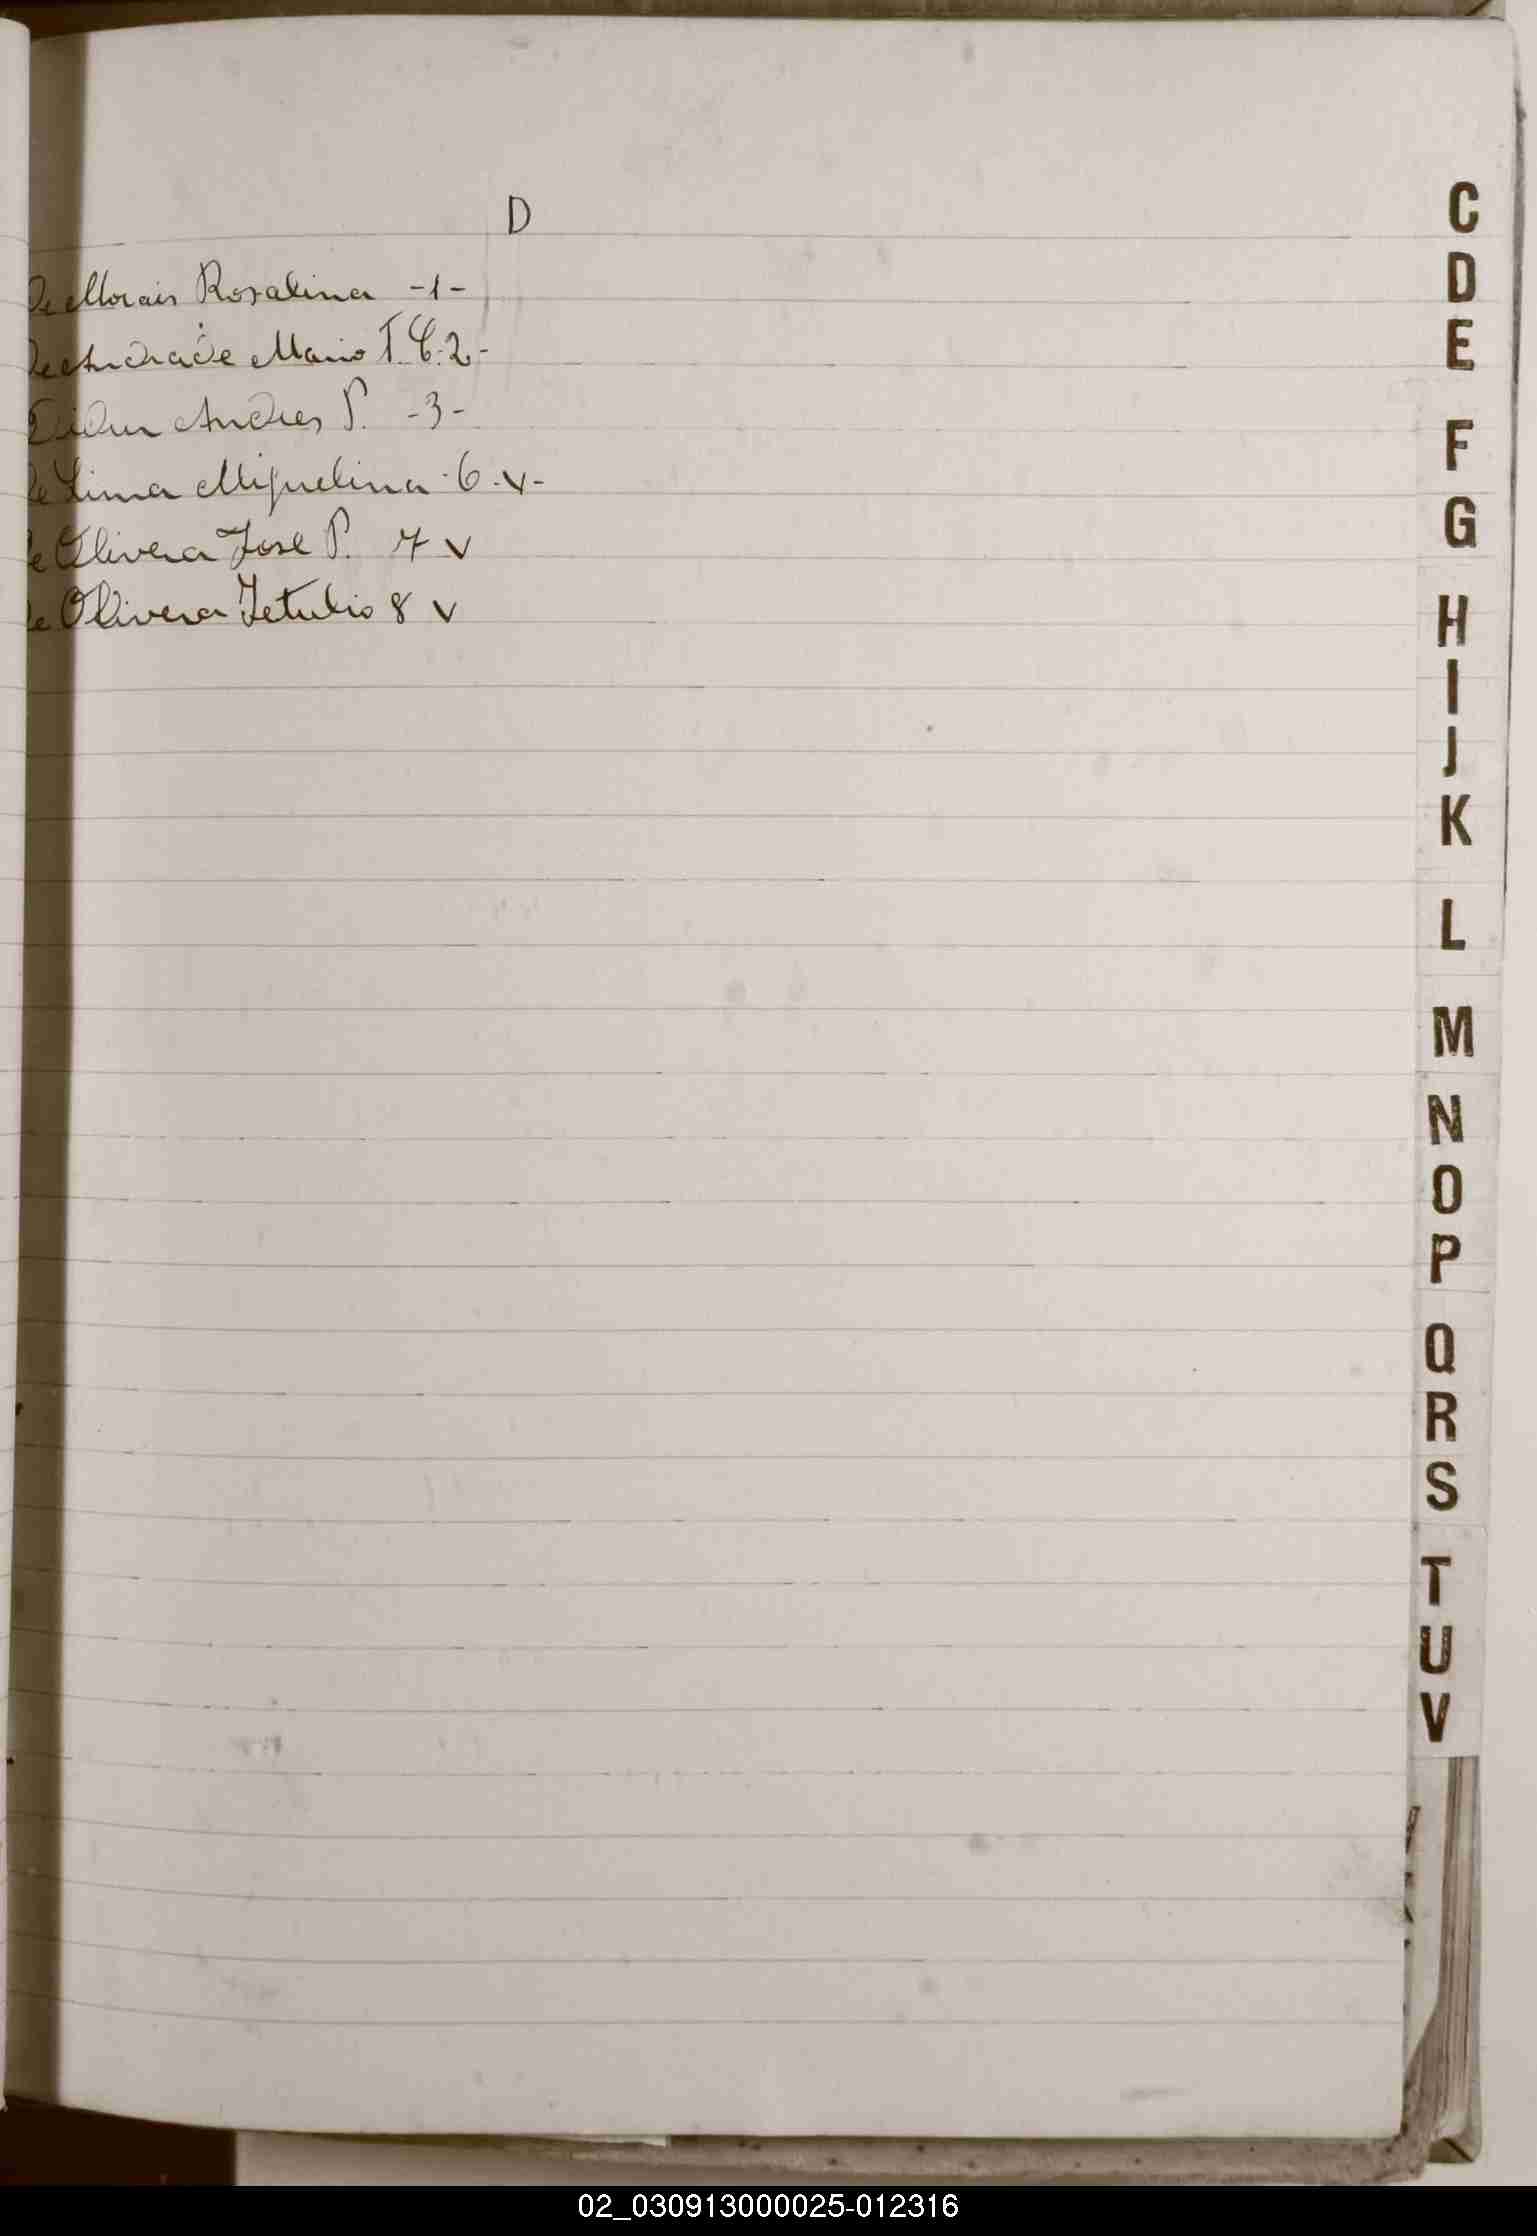 D
De Morais Rosalina -1-
De Andrade Mario T. C. 2-
Andres P. -3-
de Lima Miguelina - 6 - v -
de Olivera Jose P. 7 v
de Olivera Getulio 8 v
C
D
E
F
G
H
I
J
K
L
M
N
O
P
Q
R
S
T
U
V
02_030913000025-012316